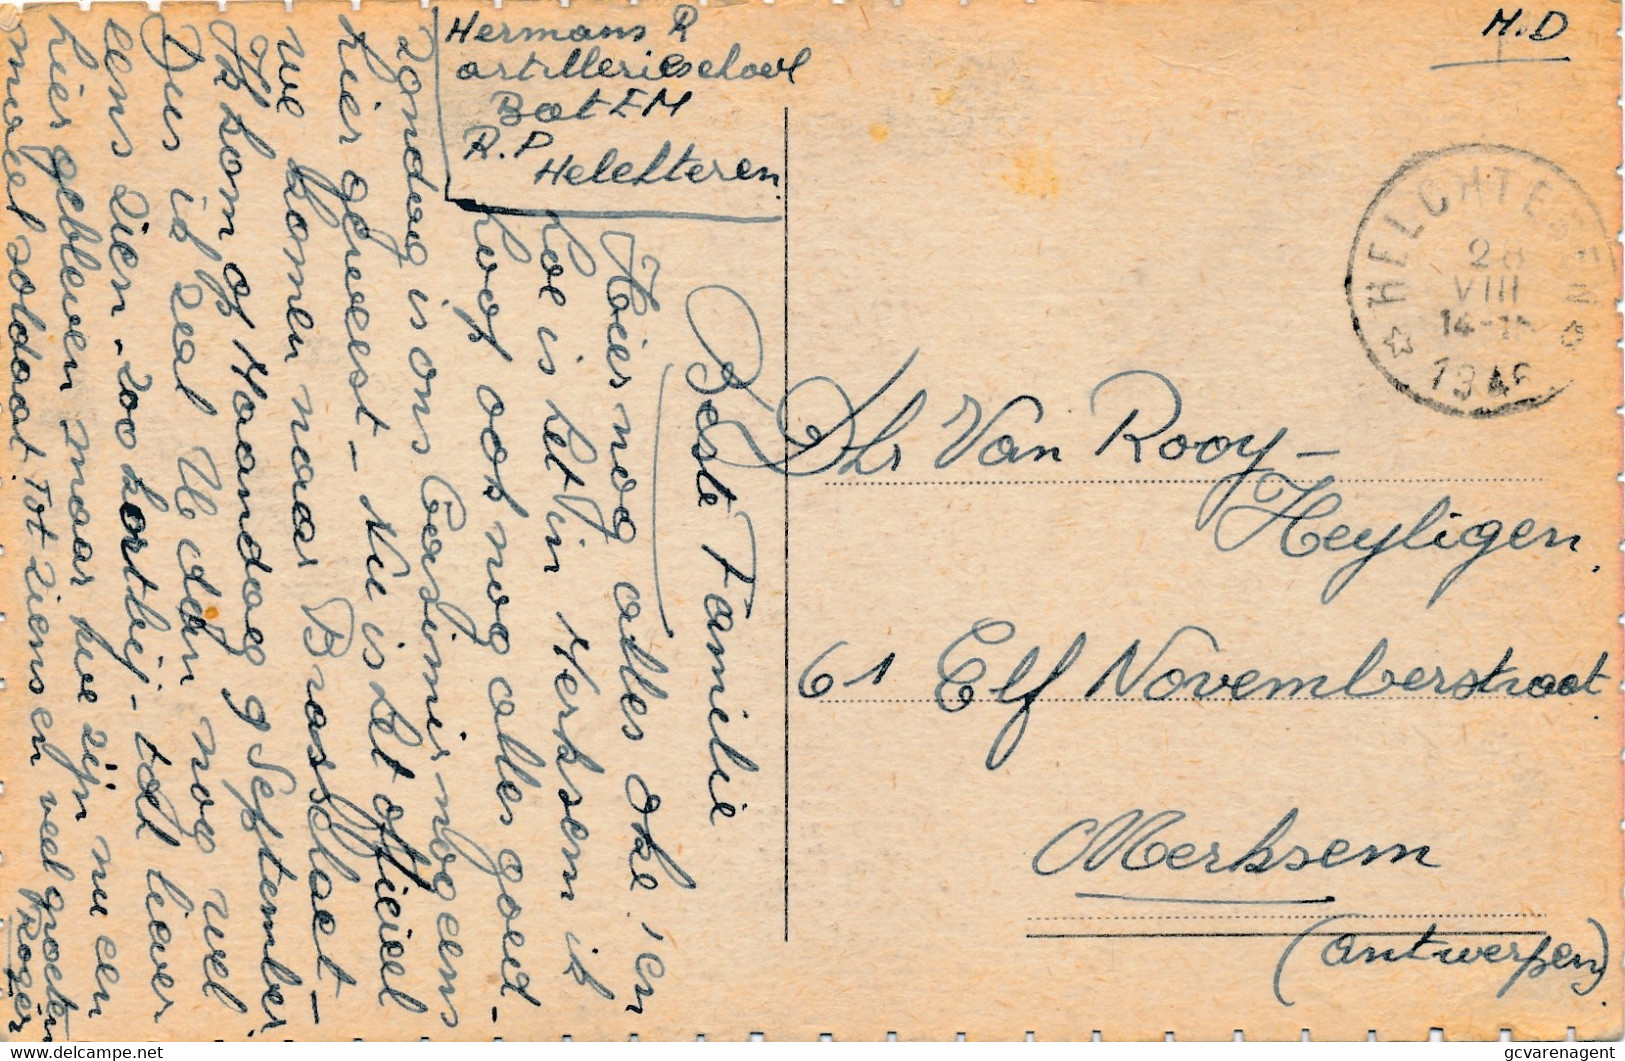 Hermans R
artillerieschool
Bat EM
R.P
Helchteren
M.D
HELCHTEREN
28
VIII
14-15
1946
Beste Familie
Hier nog alles oke! en
hoe is het in Merksem ik
hoop ook nog alles goed -
zondag is ons Casimir nogeens
hier geweest - Nu is het officieel
we komen naar Brasschaet -
Ik kom op Maandag 9 September
Dus ik zal U dan nog wel
eens zien - zoo kortbij - toch liever
hier gebleven maar we zijn nu een
maal soldaat. Tot ziens en veel groeten
Roger
Dhr Van Rooy -
Heyligen.
61 Elf Novemberstraat
Merksem
(Antwerpen)
gcvarenagent